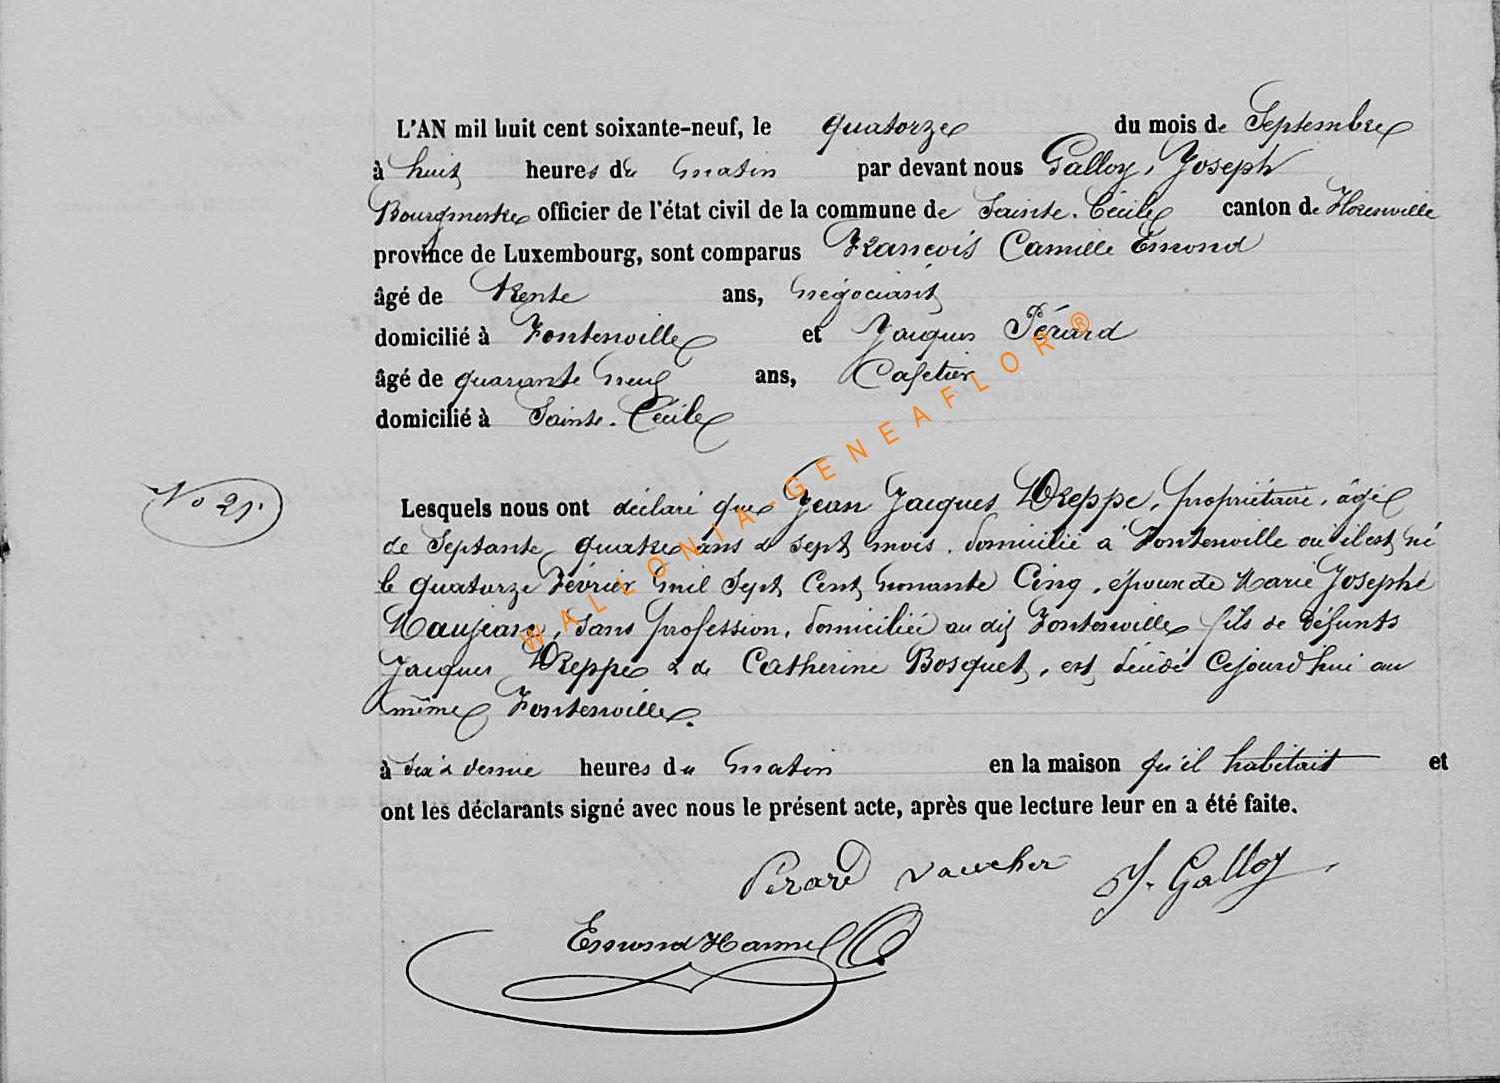 L'AN mil huit cent soixante-neuf, le quatorze du mois de Septembre
à huit heures du matin par devant nous Galloy, Joseph
Bourgmestre officier de l'état civil de la commune de Sainte-Cécile canton de Florenville
province de Luxembourg, sont comparus François Camille Emond
âgé de trente ans, négociant
domicilié à Fontenoille et Jacques Pérard
âgé de quarante neuf ans, Cafetier
domicilié à Sainte-Cécile
No 21.
Lesquels nous ont déclaré que Jean Jacques Dreppe, propriétaire, âgé
de Septante quatre ans & sept mois, domicilié à Fontenoille où il est né
le quatorze Février mil Sept Cent nonante Cinq, époux de Marie Josephe
Maujean, Sans profession, domiciliée au dit Fontenoille fils de défunts
Jacques Dreppe & de Catherine Bosquet, est décédé Cejourd'hui au
même Fontenoille.
à six & demie heures du matin en la maison qu'il habitait et
ont les déclarants signé avec nous le présent acte, après que lecture leur en a été faite.
Perard Vaucher J. Galloy
Emond Hamel C.
WALLONIA-GENEAFLOR®